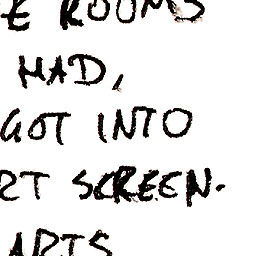 E ROOMS
HAD,
GOT INTO
RT SCREEN.
ARTS